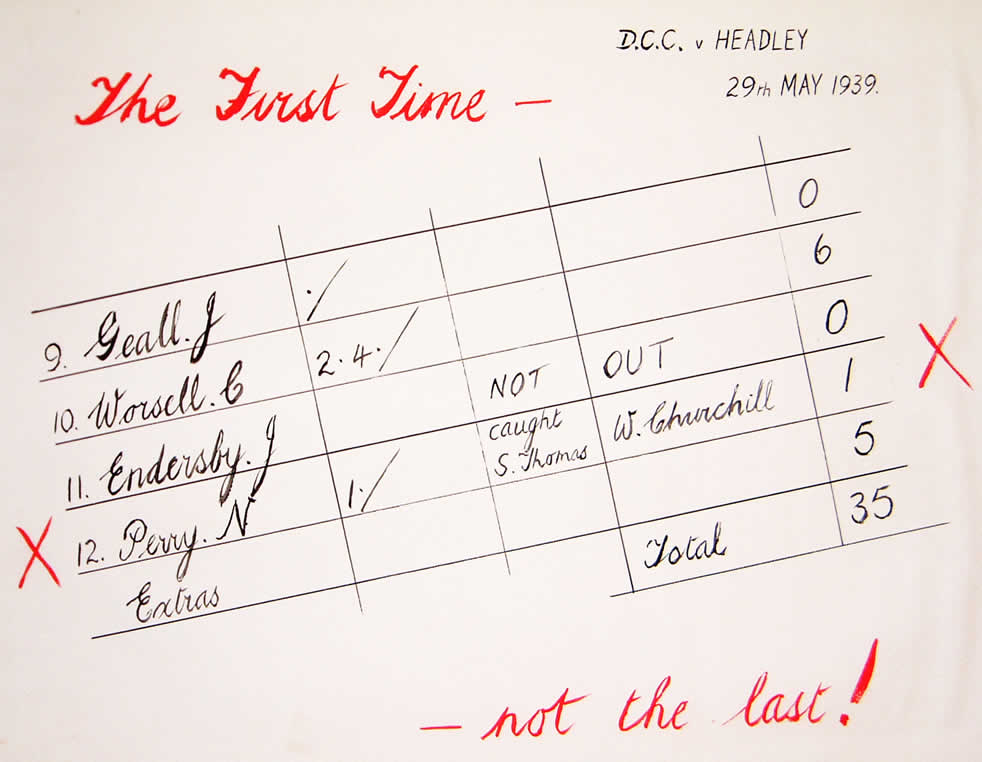 D.C.C. v HEADLEY
29th MAY 1939.
The First Time —
9. Geall. J ·/ 0
10. Worsell. C 2·4·/ 6
11. Endersby. J NOT OUT 0
12. Perry. N 1·/ caught S. Thomas W. Churchill 1
Extras 5
Total 35
X X
— not the last!